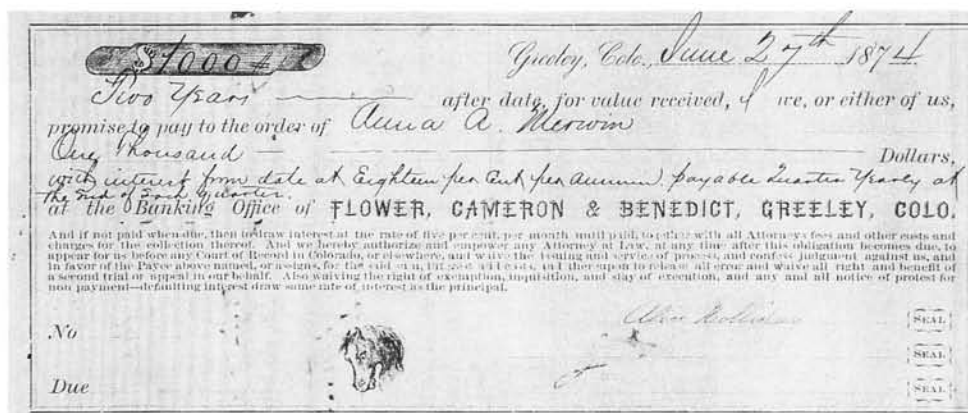 $1000 #
Greeley, Colo., June 27th 1874
Two Years after date, for value received, I we, or either of us,
promise to pay to the order of Anna A. Merwin
One Thousand Dollars,
with interest from date at Eighteen per Cent per annum. payable Quarter Yearly at
the End of Each quarter.
at the Banking Office of FLOWER, CAMERON & BENEDICT, GREELEY, COLO.
And if not paid when due, then to draw interest at the rate of five per cent. per month until paid, together with all Attorneys fees and other costs and
charges for the collection thereof. And we hereby authorize and empower any Attorney at Law, at any time after this obligation becomes due, to
appear for us before any Court of Record in Colorado, or elsewhere, and waive the issuing and service of process, and confess judgment against us, and
in favor of the Payee above named, or assigns, for the said sum, interest and costs, and thereupon to release all error and waive all right and benefit of
a second trial or appeal in our behalf. Also waiving the right of exemption, inquisition, and stay of execution, and any and all notice of protest for
non payment—defaulting interest draw same rate of interest as the principal.
No SEAL
SEAL
Due SEAL